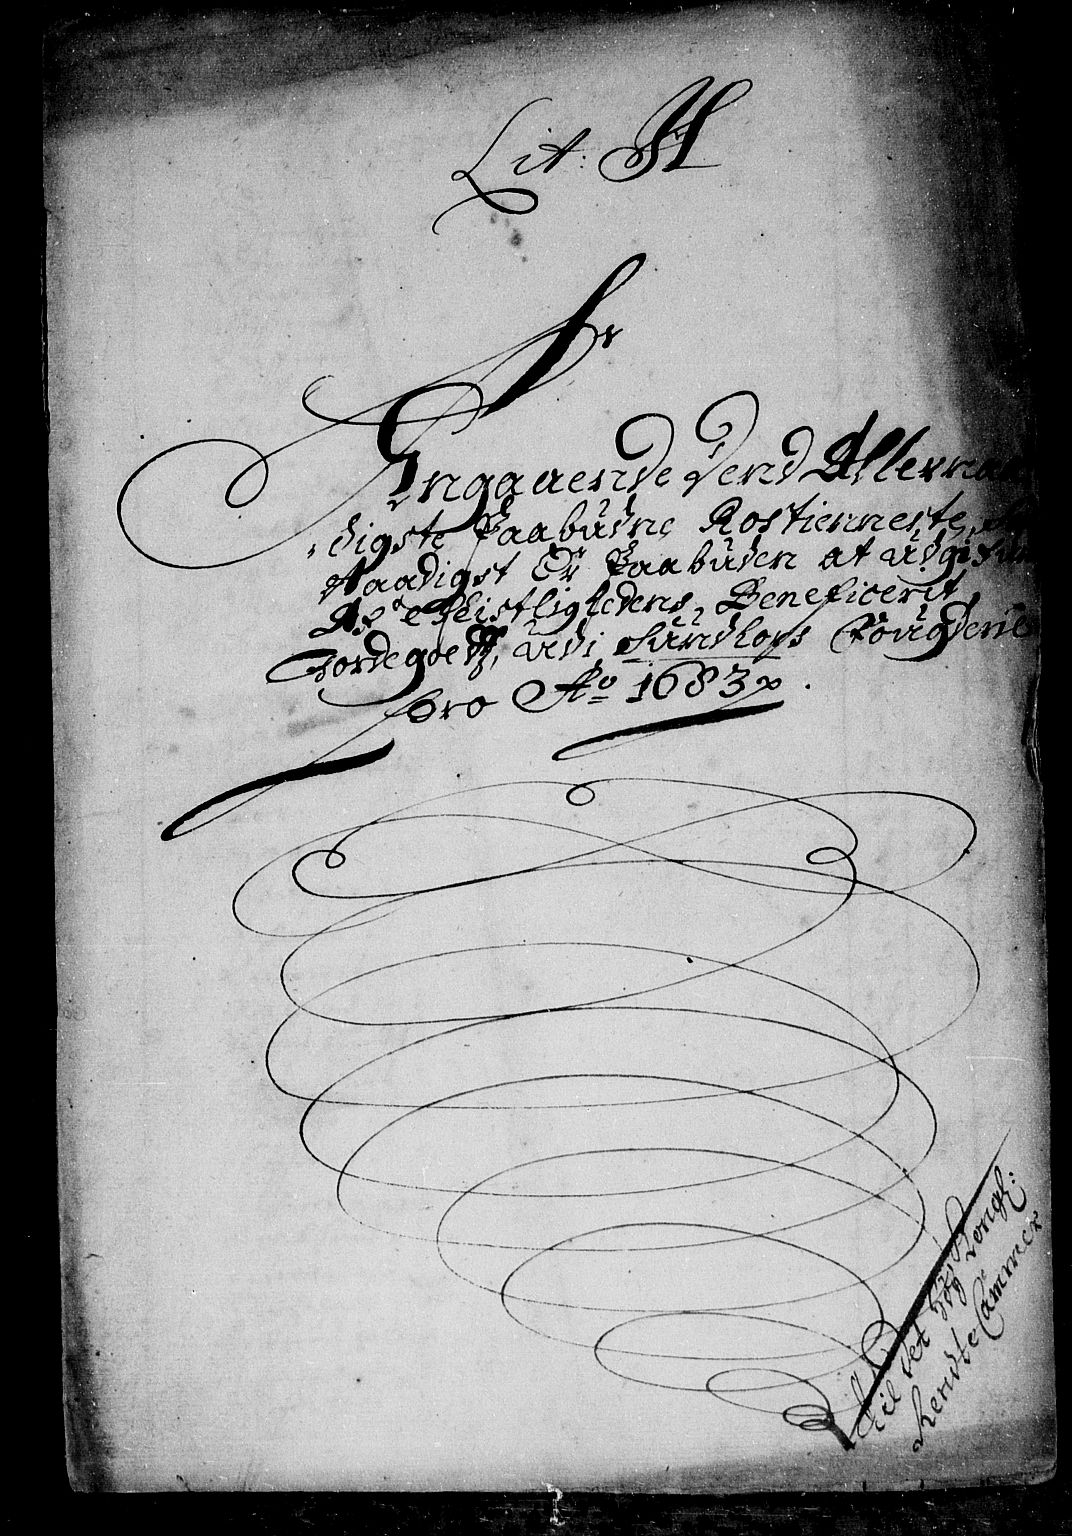 Lit: H
Angaaende dend Allernaa
digste Paabudne Rostienneste,
Naadigst Er Paabuden at udgifvis
Af Geistlighedens, Beneficerit
Jordegoedtz, udi Sundhops Fougderie
pro Ao 1683
Til det Kongl:
Rente Cammer